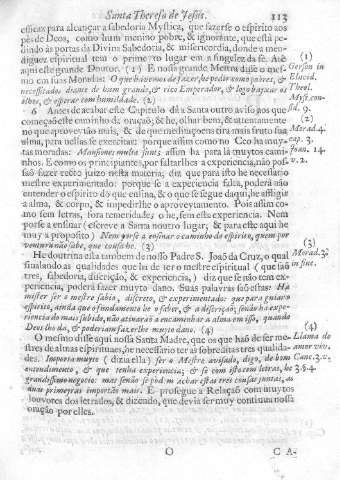 Santa Theresa de Jesus. 113
efficaz para alcançar a sabedoria Mystica, que fazerse o espirito aos
pès de Deos, como hum menino pobre, & ignorante, que està pe-
dindo às portas da Divina Sabedoria, & misericordia, donde a men-
diguez espiritual tem o primeyro lugar em a singeleza da fé. Até
aqui este grande Doutor. (1) E nossa grande Mestra disse o mes-
mo em suas Moradas: O que havemos de fazer, he pedir como pobres, &
necessitados diante de hum grande, & rico Emperador, & logo bayxar os
olhos, & esperar com humildade. (2)
6 Antes de acabar este Capitulo dà a Santa outro aviso aos que
começaõ este caminho da oraçaõ; & he, olhar bem, & attentamente
no que aproveytaõ mais, & de que meditaçoens tira mais fruto sua
alma, para nellas se exercitar; porque assim como no Ceo ha muy-
tas moradas: Mansiones multæ sunt; assim ha para lá muytos cami-
nhos. E como os principiantes, por faltarlhes a experiencia, naõ pos-
saõ fazer recto juizo nesta materia; diz que para isto he necessario
mestre experimentado: porque se a experiencia falta, poderá naõ
entender o espirito do que ensina, & o que se segue daqui, he affligir
a alma, & corpo, & impedirlhe o aproveytamento. Pois assim co-
mo sem letras, fora temeridade; o he, sem esta experiencia. Nem
porse a ensinar (escreve a Santa noutro lugar, & para este aqui he
muy a proposito) Nem porse a ensinar o caminho do espirito, quem por
ventura naõ sabe, que cousa he. (3)
He doutrina esta tambem de nosso Padre S. Joaõ da Cruz, o qual
sinalando as qualidades que ha de ter o mestre espiritual (que saõ
tres, sabedoria, discriçaõ, & experiencia) diz que senaõ tem ex-
periencia, poderá fazer muyto dano. Suas palavras saõ estas: Ha
mister ser o mestre sabio, discreto, & experimentado: que para guiar o
espirito, ainda que o fundamento he o saber, & a descriçaõ, senaõ ha expe-
riencia do mais subido, naõ atinaraõ a encaminhar a alma em isso, quando
Deos lho dá, & poderiam fazerlhe muyto dano. (4)
O mesmo disse aqui nossa Santa Madre, que os que haõ de ser me-
stres de almas espirituaes, he necessario ter as sobreditas tres qualida-
des. Importa muyto (dizia ella) ser o Mestre avisado, digo, de bom
entendimento, & que tenha experiencia; & se com isto tem letras, he
grandissimo negocio: mas senaõ se podem achar estas tres cousas juntas, as
duas primeyras importaõ mais. E prosegue a Relaçaõ com muytos
louvores dos letrados, & dizendo, que devia ser muy continua nossa
oraçaõ por elles.
(1)
Gerson in
Elucid.
Theol.
Myst. con-
sid. 9.
(2)
Morad. 4.
cap. 3.
Joan. 14.
v. 2.
(3)
Morad. 3.
in fine.
(4)
Llama de
amor viv.
Canc. 3. v.
3. §. 4
O
CA-